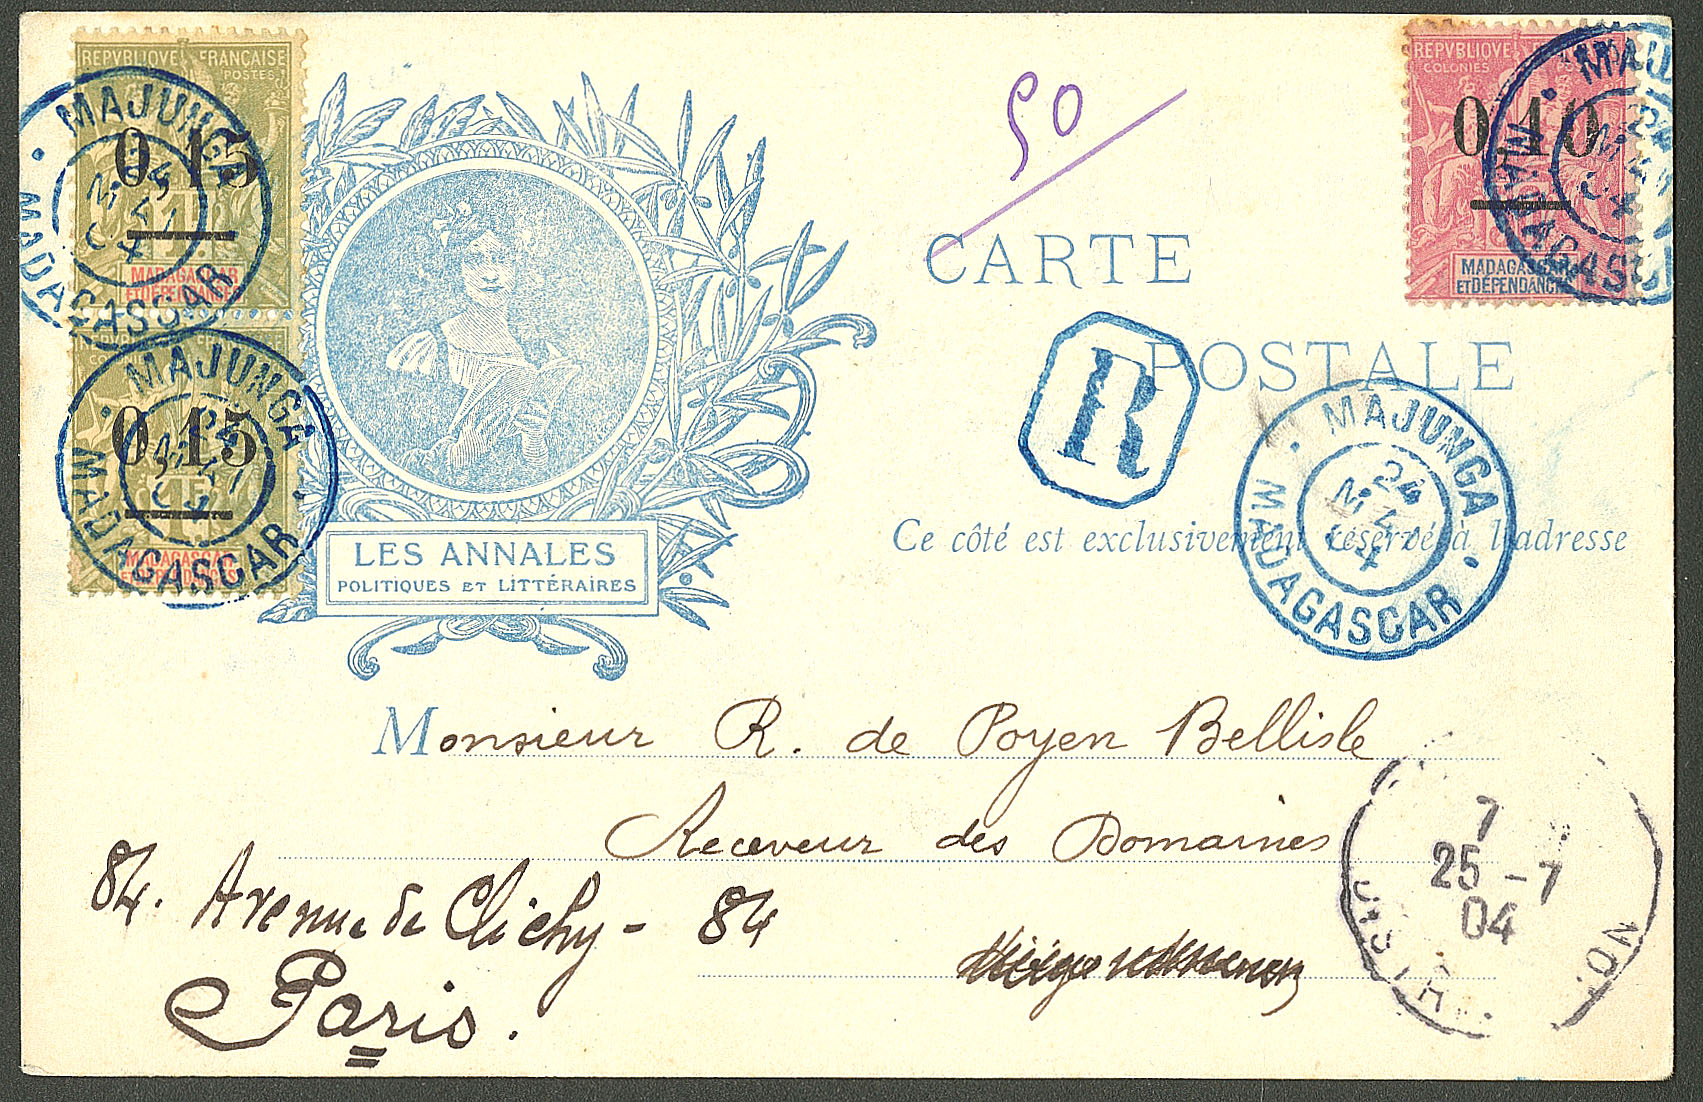 REPVBLIQVE FRANÇAISE
POSTES
0,15
MADAGASCAR
ET DÉPENDANCES
MAJUNGA
MADAGASCAR
0,15
MADAGASCAR
ET DÉPENDANCES
MAJUNGA
24
MAI
04
MADAGASCAR
90
REPVBLIQVE
COLONIES
0,10
MADAGASCAR
ET DÉPENDANCES
MAJUNGA
24
MADAGASCAR
CARTE
POSTALE
R
MAJUNGA
24
MAI
04
MADAGASCAR
Ce côté est exclusivement réservé à l'adresse
LES ANNALES
POLITIQUES ET LITTÉRAIRES
Monsieur R. de Poyen Bellisle
Receveur des Domaines
84. Avenue de Clichy - 84
Paris.
7
25 -7
04
DISTRI
ON